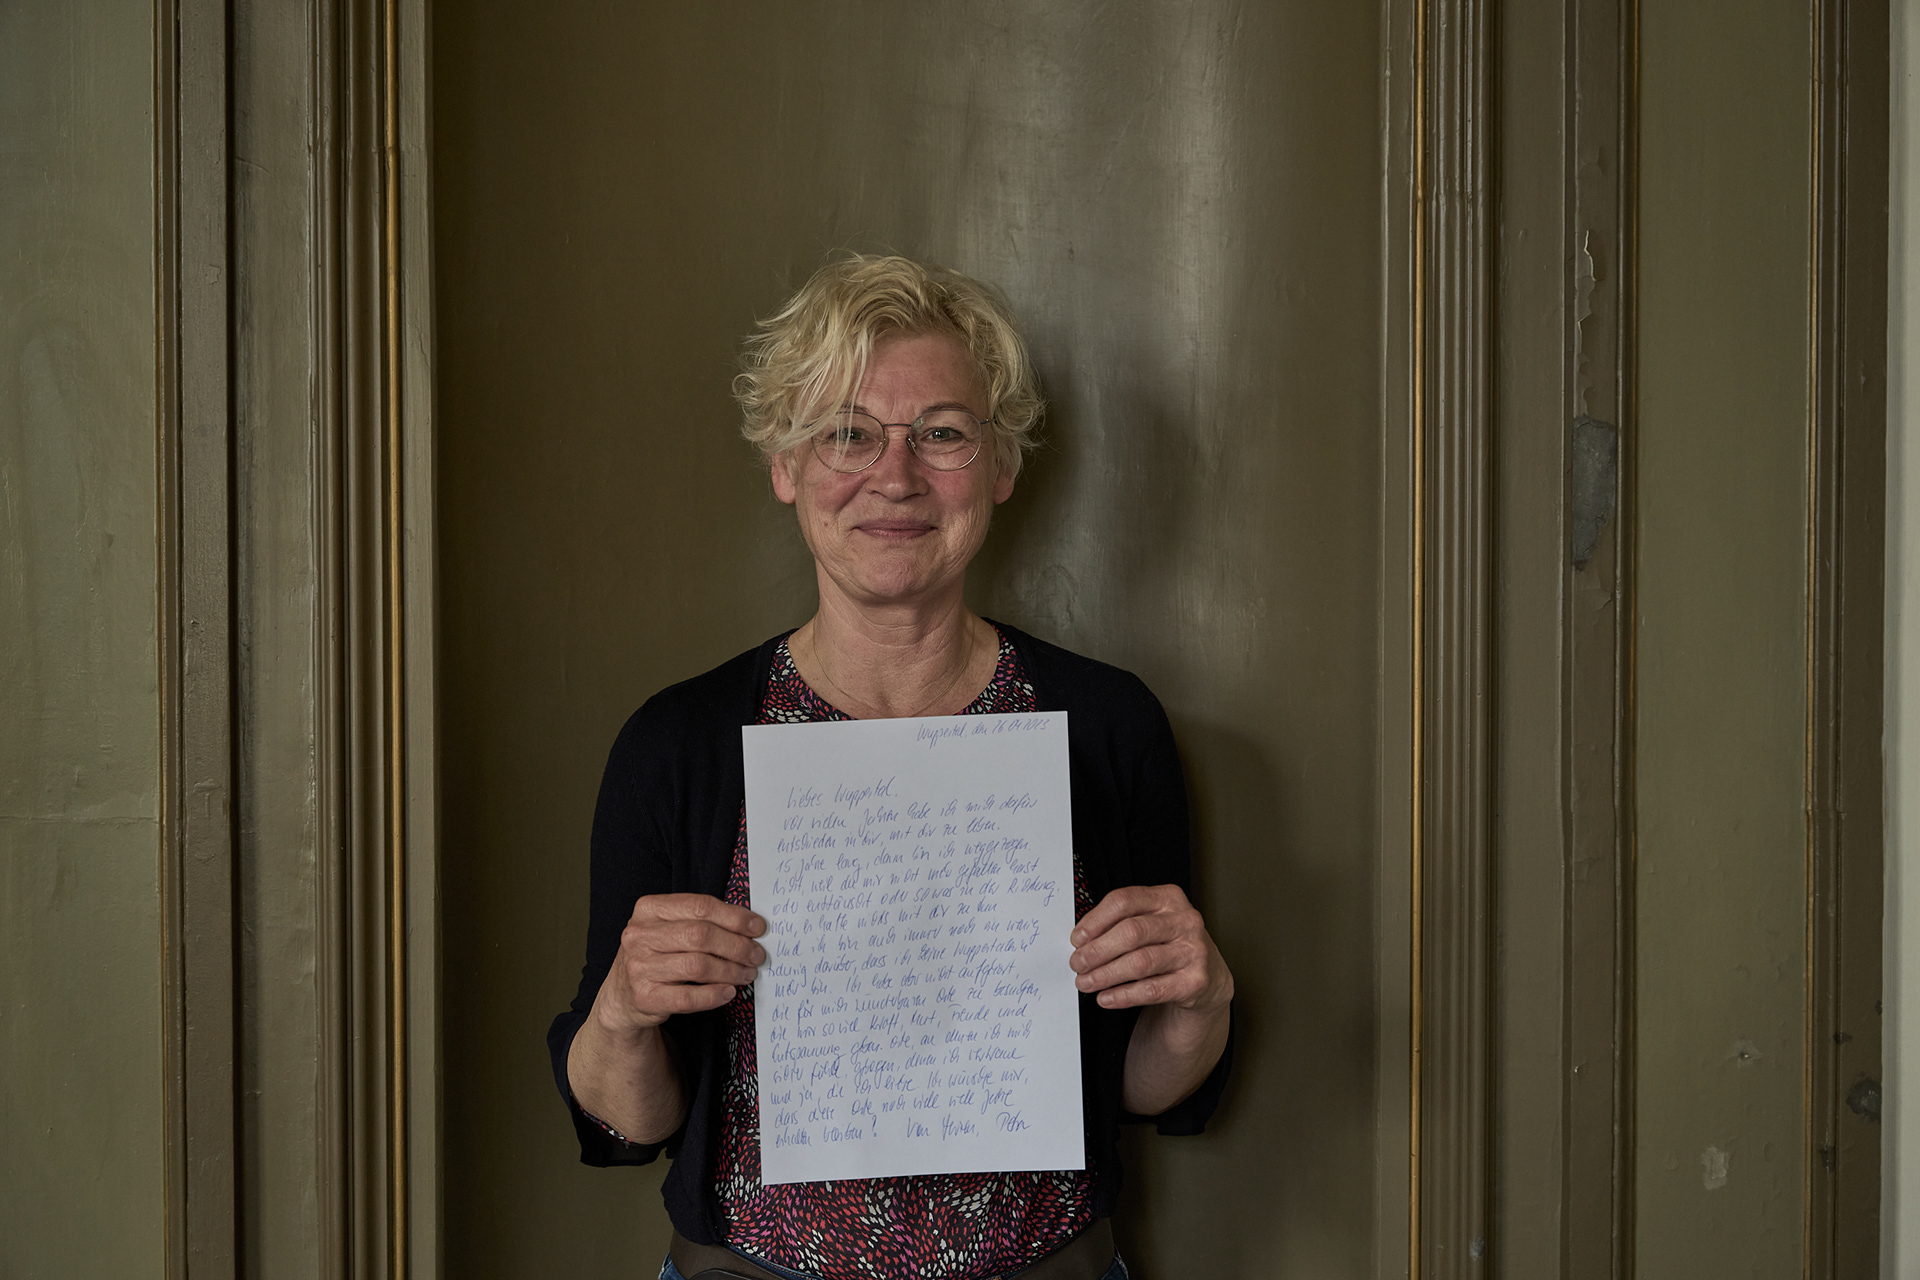 Wuppertal, den 26.04.2023
Liebes Wuppertal,
vor vielen Jahren habe ich mich dafür
entschieden in dir, mit dir zu leben.
15 Jahre lang, dann bin ich weggezogen
nicht, weil du mir nicht mehr gefallen hast
oder enttäuscht oder sowas in der Richtung.
Nein, es hatte nichts mit dir zu tun
Und ich bin auch immer noch ein wenig
traurig darüber, dass ich keine Wuppertalerin
mehr bin. Ich habe aber nicht aufgehört,
die für mich wunderbaren Orte zu besuchen,
die mir so viel Kraft, Mut, Freude und
Entspannung geben. Orte, an denen ich mich
sicher fühle, geborgen, denen ich vertraue
und ja, die ich liebe. Ich wünsche mir,
dass diese Orte noch viele viele Jahre
erhalten bleiben! Von Herzen, Petra